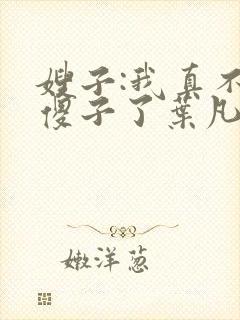 嫂子:我真不
傻子了葉凡
嫩洋葱